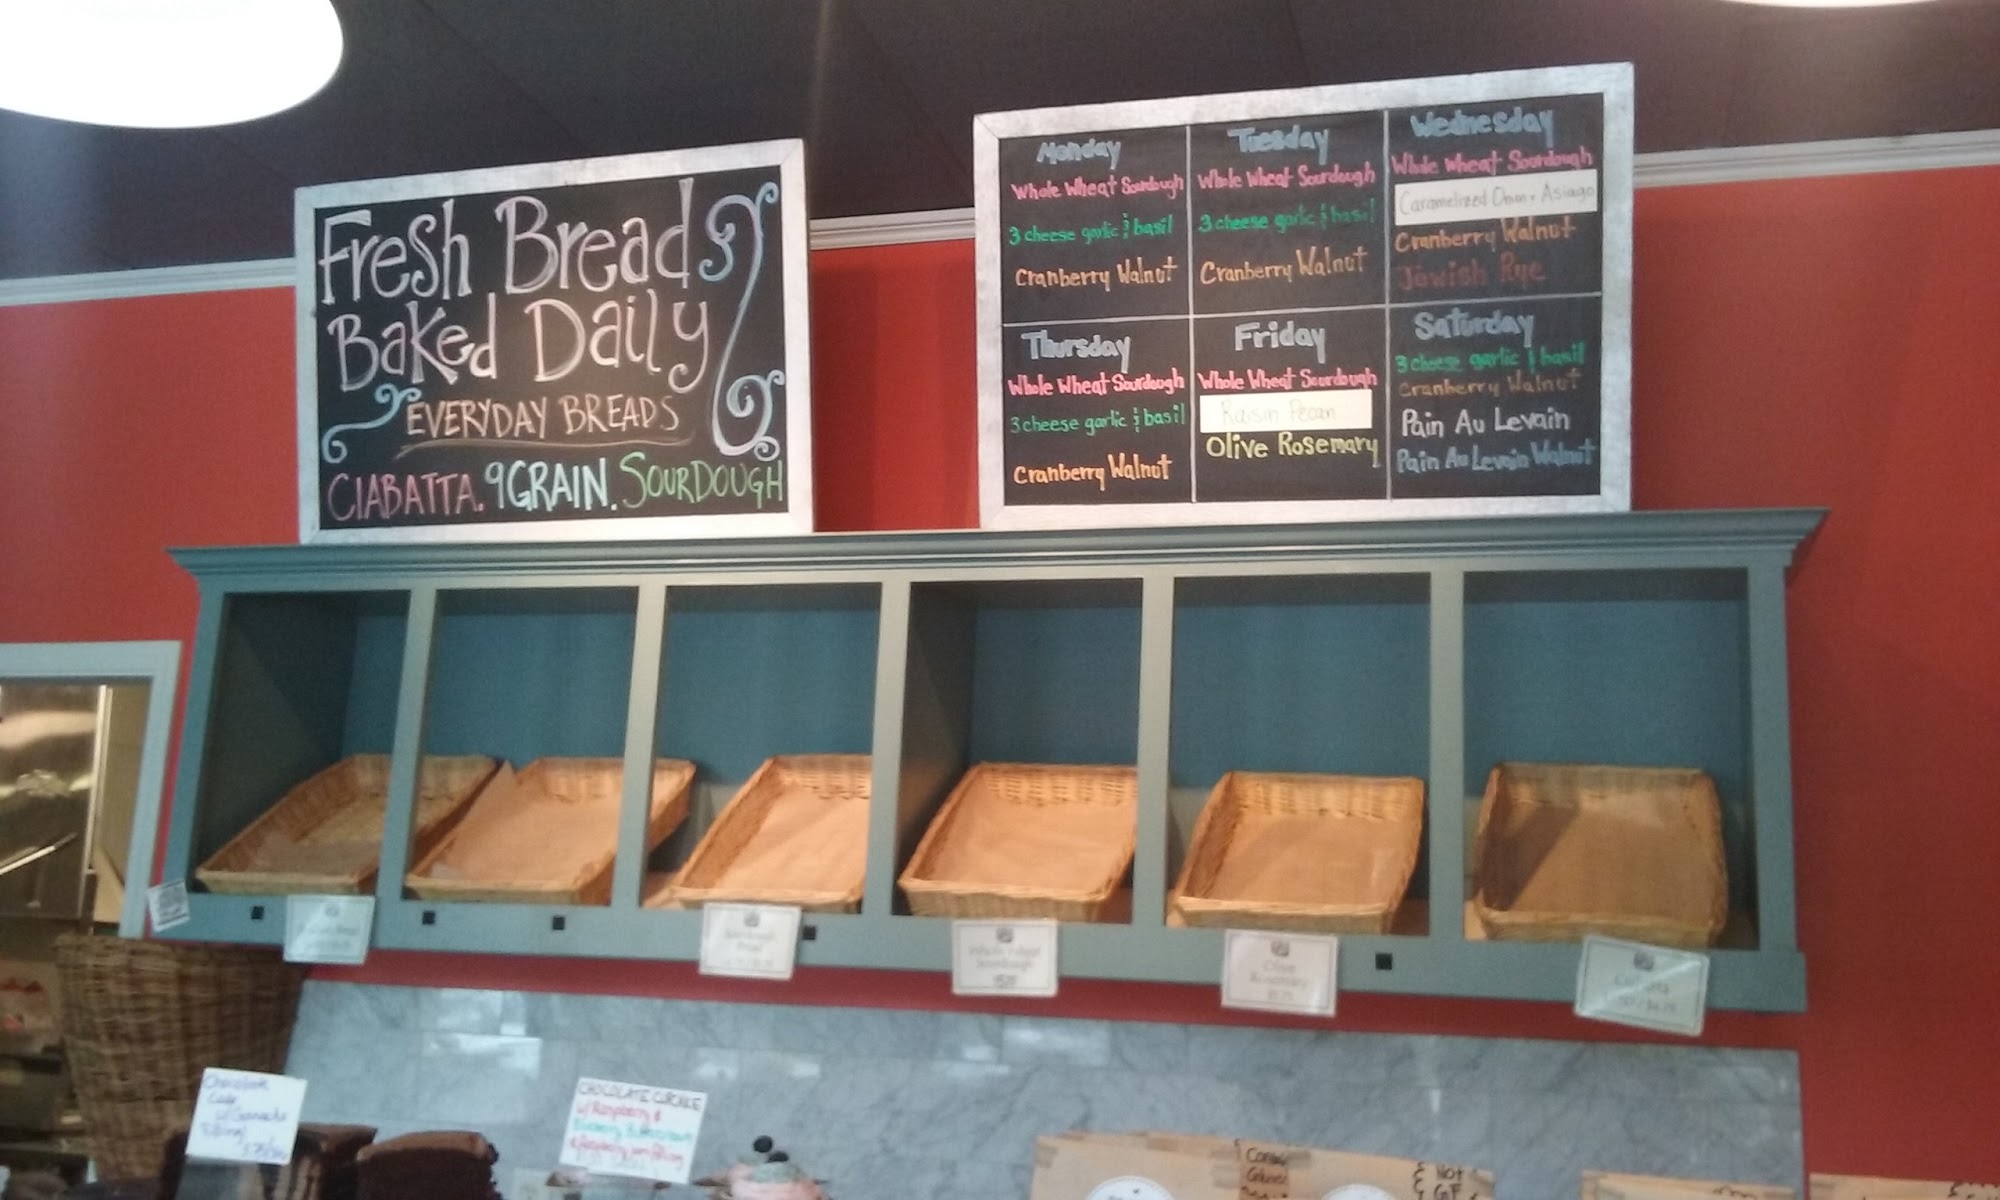 Fresh Breads
Baked Daily
EVERYDAY BREADS
CIABATTA. 9GRAIN. SOURDOUGH
Monday
Whole Wheat Sourdough
3 cheese garlic & basil
Cranberry Walnut
Tuesday
Whole Wheat Sourdough
3 cheese garlic & basil
Cranberry Walnut
Wednesday
Whole Wheat Sourdough
Caramelized Onion + Asiago
Cranberry Walnut
Jewish Rye
Thursday
Whole Wheat Sourdough
3 cheese garlic & basil
Cranberry Walnut
Friday
Whole Wheat Sourdough
Raisin Pecan
Olive Rosemary
Saturday
3 cheese garlic & basil
Cranberry Walnut
Pain Au Levain
Pain Au Levain Walnut
Whole Wheat
Sourdough
Olive
Rosemary
Ciabatta
Chocolate
Cake
w/ Ganache
filling
CHOCOLATE
w/ Raspberry &
NOT
GF